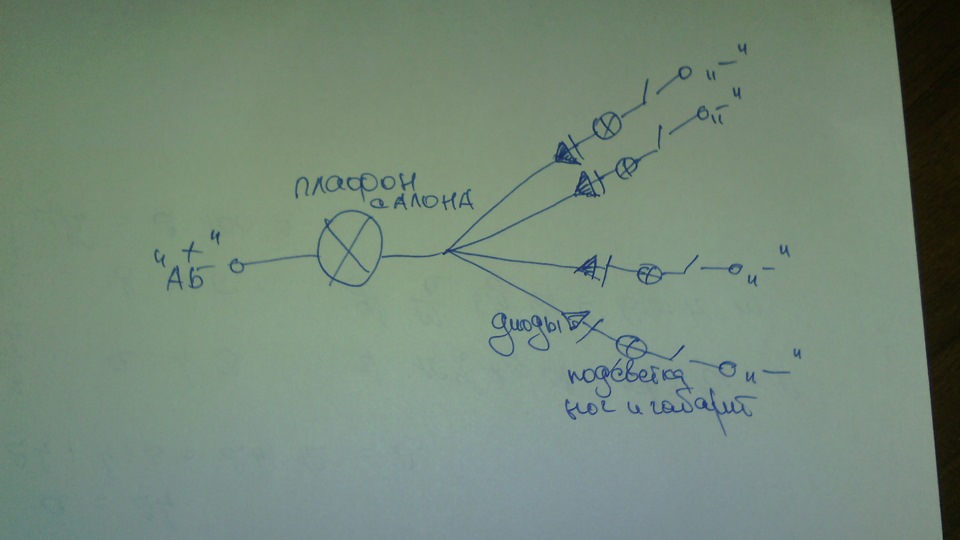 плафон
салона
"+"
АБ
"-"
"-"
"-"
диоды
"-"
подсветка
ног и габарит